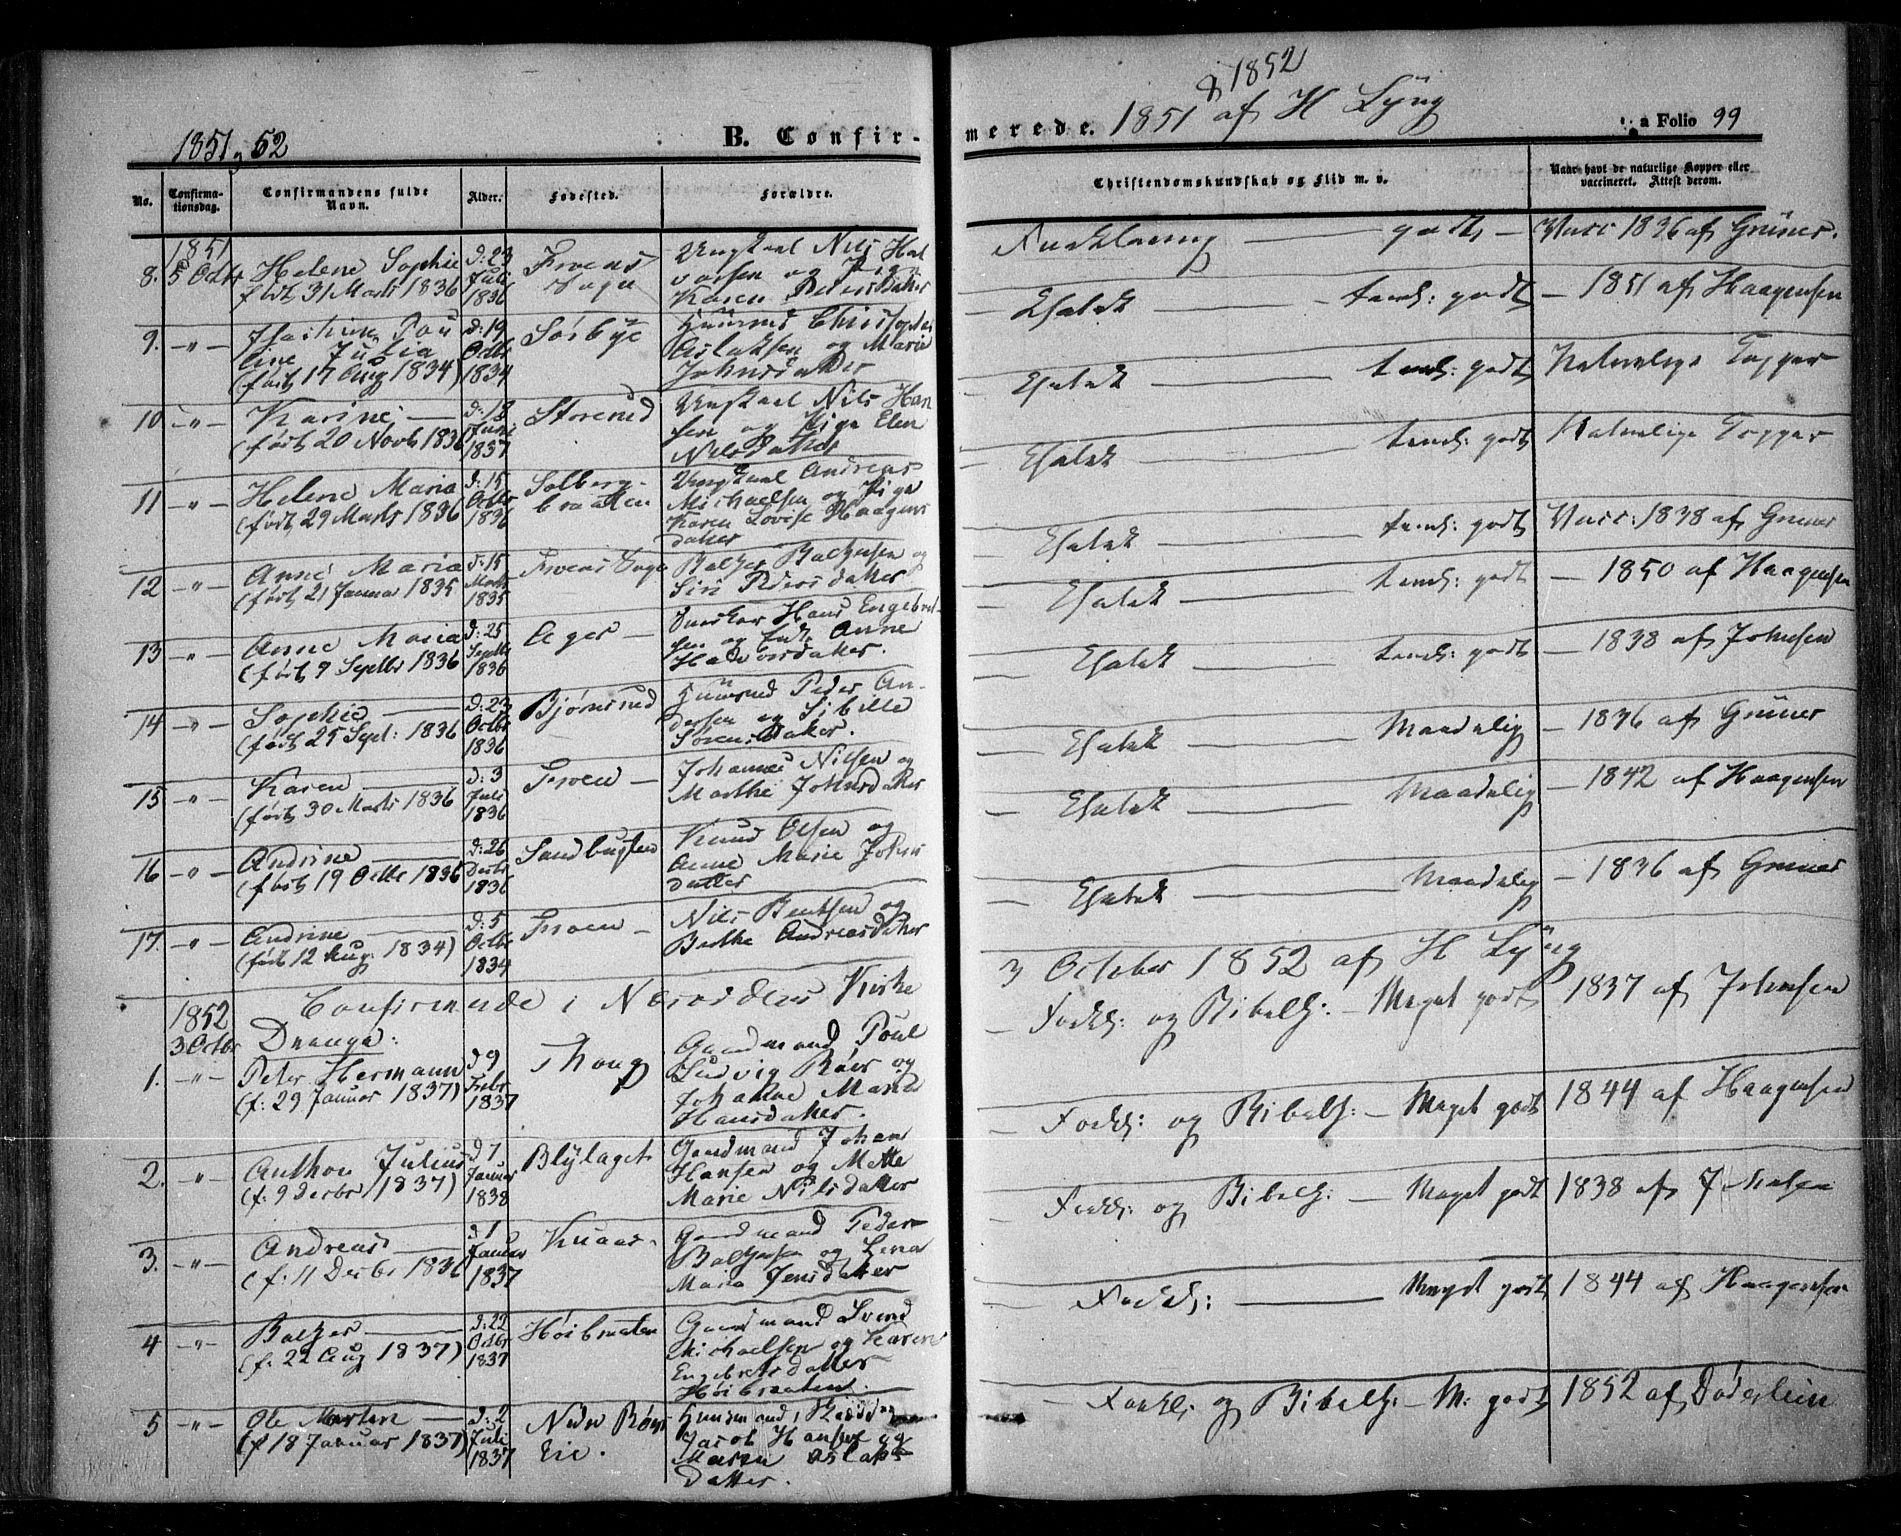 1851 & 52
B. Confir-
No.
Confirma-
tionsdag.
Confirmandens fulde
Navn.
Alder.
Fødested.
Forældre.
1851
8. 5 Octbr Helene Sophie
født 31 Marts 1836
d: 23
Juli
1836
Froens
Sogn
Ungkarl Nils Hal
vorsen og Pige
Karen Pedersdatter
9. -"- Pau
line Julia
(født 17 Aug 1834)
d: 19
Octbr
1834
Sørbye
Huusmd Christopher
Aslaksen og Marie
Johnsdatter
10 -"- Karine
(født 20 Novb 1836
d: 18
Juni
1837
Storerud
Ungkarl Nils Han
sen og Pige Elen
Nilsdatter
11 -"- Helene Maria
(født 29 Marts 1836
d: 15
Octbr
1836
Solberg-
braatten
Ungkarl Andreas
Michaelsen og Pige
Karen Lovise Haagens
datter
12 -"- Anne Maria
(født 21 Januar 1835
d: 15
Marts
1835
Froens Sogn
Baltzer Baltzersen og
Siri Pedersdatter
13 -"- Anne Maria
(født 9 Septbr 1836
d: 25
Septbr
1836
Ager
Hans Engebret-
sen og Anne
Halvorsdatter.
14 -"- Sophie
(født 25 Sept: 1836
d: 23
Octbr
1836
Bjørnerud
Huusmd Peder An-
dersen og Sibille
Sørensdatter.
15 -"- Karen
(født 30 Marts 1836
d: 3
Juli
1836
Froen
Johannes Nilsen og
Marthe Johnsdatter
16 -"- Andrine
(født 19 Octbr 1836
d: 26
Decbr
1836
Sandbugten
Knud Olsen og
Anne Marie Johns
datter
17. -"- Andrine
(født 12 Aug: 1834)
d: 5
Octbr
1834
Froen
Nils Bentsen og
Berthe Andreasdatter
1852
3 Octbr
Confirmerede i Næsoddens Kirke
Drenge:
1. -"- Peter Hermann
(f: 29 Januar 1837)
d 9
Febr
1837
Gaardmand Poul
Ludvig Røer og
Johanne Marie
Hansdatter.
2. " Anthon Julius
(f: 9 Decbr 1837)
d 7
Januar
1838
Blylaget
Gaardmand Johan
Hansen og Mette
Marie Nilsdatter
3. -"- Andreas
(f: 11 Decbr 1836
d 1
Januar
1837
Knaar
Gaardmand Peder
Baltzersen og Lena
Maria Jensdatter
4 -"- Baltzer
(f: 22 Aug 1837)
d: 22
Octbr
1837
Høibraaten
Gaardmand Svend
Michaelsen og Karen
Engebretsdatter
Høibraaten.
5 -"- Ole Martin
(f 18 Januar 1837)
d: 2
Juli
1837
Nedre Røer
Eie.
Huusmand
Jacob Hansen og
Maren Aslaks
datter.
& 1852
merede. 1851 af H Lÿng
Folio 99
Christendomskundskab og Flid m. v.
Naar havt de naturlige Kopper eller
vaccineret. Attest derom.
Forklaring — godt — Vacc 1836 af Grüner.
Ligeledes — 1851 af Haagensen
— Naturlige Kopper
— Naturlige Kopper
— Vacc: 1838 af Grüner
— 1850 af Haagensen
— 1838 af Johnsen
— Maadelig — 1836 af Grüner
— Maadelig — 1842 af Haagensen
— Maadelig — 1836 af Grüner
3 October 1852 af H Lÿng
— Forkl: og Bibelh: — Meget godt 1837 af Johnsen
— Forkl: og Bibelh: — Meget godt 1844 af Haagensen
— Forkl: og Bibelh: — Meget godt 1838 af Johnsen
Forkl: — Meget godt 1844 af Haagensen
— Forkl: og Bibelh: — M: godt 1852 af Døderlein